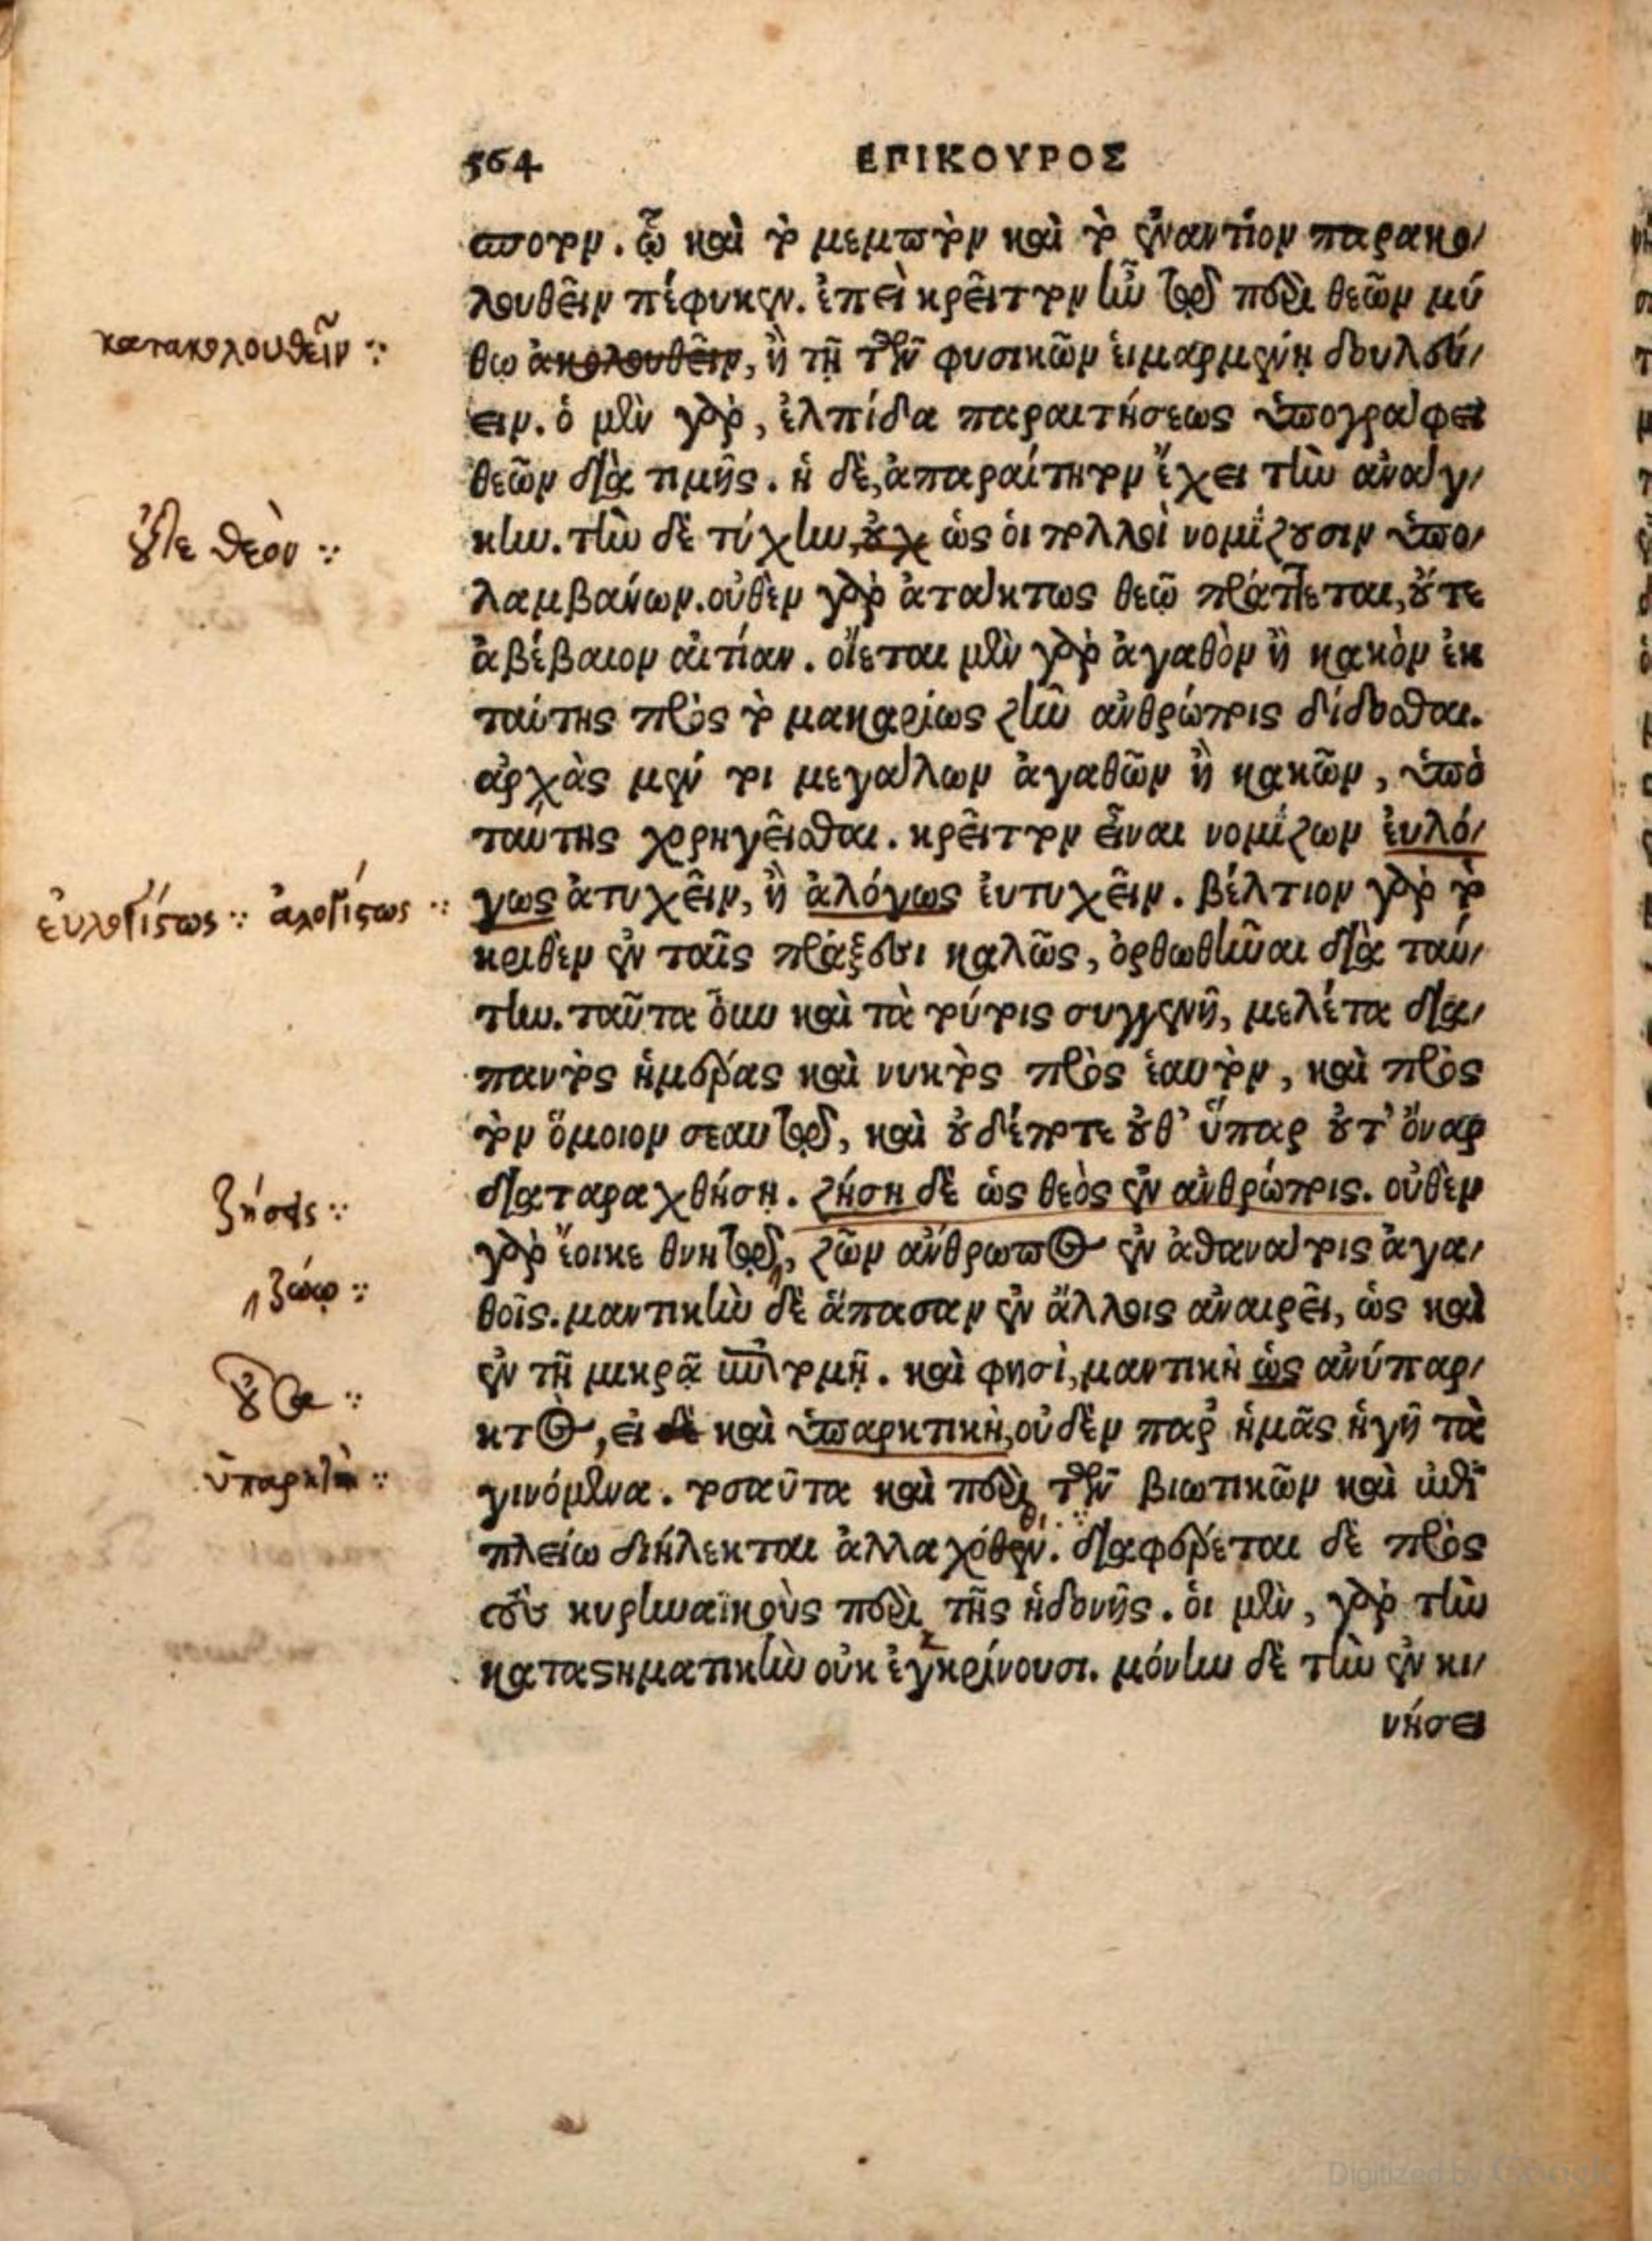 564 ΕΠΙΚΟΥΡΟΣ
σποτον. ᾧ καὶ τὸ μεμπτὸν καὶ τὸ ἐναντίον παρακο/
λουθεῖν πέφυκεν. ἐπεὶ κρεῖττον ἦν τῷ περὶ θεῶν μύ
κατακολουθεῖν
θῳ ἀκολουθεῖν, ἢ τῇ τῶν φυσικῶν εἱμαρμένῃ δουλεύ/
ειν. ὁ μὲν γὰρ, ἐλπίδα παραιτήσεως ὑπογράφει
θεῶν διὰ τιμῆς. ἡ δὲ, ἀπαραίτητον ἔχει τὴν ἀνάγ/
οὔτε θεὸν
κην. τὴν δὲ τύχην, οὐχ ὡς οἱ πολλοὶ νομίζουσιν ὑπο/
λαμβάνων. οὐθὲν γὰρ ἀτάκτως θεῷ πράττεται, οὔτε
ἀβέβαιον αἰτίαν. οἴεται μὲν γὰρ ἀγαθὸν ἢ κακὸν ἐκ
ταύτης πρὸς τὸ μακαρίως ζῆν ἀνθρώποις δίδοσθαι.
ἀρχὰς μέν τοι μεγάλων ἀγαθῶν ἢ κακῶν, ὑπὸ
ταύτης χορηγεῖσθαι. κρεῖττον εἶναι νομίζων εὐλό/
εὐλογίστως ἀλογίστως
γως ἀτυχεῖν, ἢ ἀλόγως εὐτυχεῖν. βέλτιον γὰρ τὸ
κριθὲν ἐν ταῖς πράξεσι καλῶς, ὀρθωθῆναι διὰ ταύ/
την. ταῦτα οὖν καὶ τὰ τούτοις συγγενῆ, μελέτα δια/
παντὸς ἡμέρας καὶ νυκτὸς πρὸς ἑαυτὸν, καὶ πρὸς
τὸν ὅμοιον σεαυτῷ, καὶ οὐδέποτε οὔθ' ὕπαρ οὔτ' ὄναρ
ζήσεις
διαταραχθήσῃ. ζήσῃ δὲ ὡς θεὸς ἐν ἀνθρώποις. οὐθὲν
ζώῳ
γὰρ ἔοικε θνητῷ, ζῶν ἄνθρωπος ἐν ἀθανάτοις ἀγα/
θοῖς. μαντικὴν δὲ ἅπασαν ἐν ἄλλοις ἀναιρεῖ, ὡς καὶ
ἐν τῇ μικρᾷ ἐπιτομῇ. καὶ φησὶ, μαντικὴ ὡς ἀνύπαρ/
κτος, εἰ δὲ καὶ ὑπαρκτικὴ, οὐδὲν παρ' ἡμᾶς ἡγῆ τὰ
ὑπαρκτὴ
γινόμενα. τοσαῦτα καὶ περὶ τῶν βιωτικῶν καὶ ἐπὶ
πλείω διήλεκται ἀλλαχόθεν. διαφέρεται δὲ πρὸς
τοὺς κυρηναϊκοὺς περὶ τῆς ἡδονῆς. οἱ μὲν, γὰρ τὴν
καταστηματικὴν οὐκ ἐγκρίνουσι. μόνην δὲ τὴν ἐν κι/
νήσει
Digitized by Google